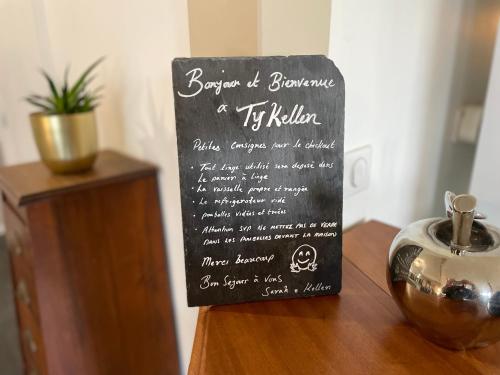 Bonjour et Bienvenue
a Ty Kellen
Petites Consignes pour le checkout
• Tout linge utilisé sera déposé dans
Le panier à linge
• La vaisselle propre et rangée
• Le refrigerateur vidé
• poubelles vidées et triées
• Attention SVP NE METTEZ PAS DE VERRE
DANS LES POUBELLES DEVANT LA MAISON)
Merci Beaucoup
Bon Séjour à vous
Sarah & Kellen